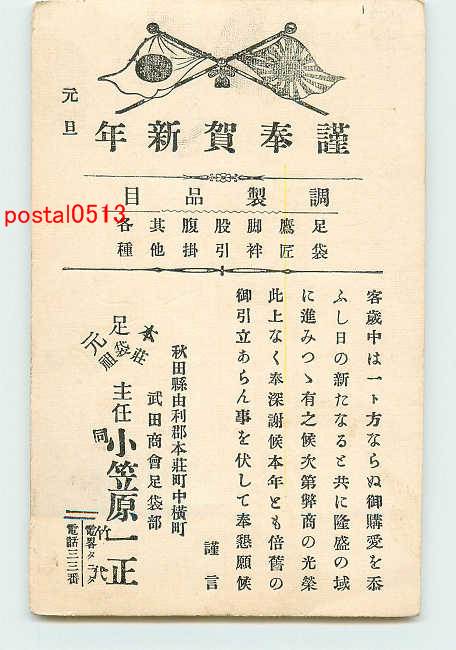 謹奉賀新年
元旦
調製品目
足袋
鷹匠
脚袢
股引
腹掛
其他
各種
postal0513
客歳中は一ト方ならぬ御購愛を忝
ふし日の新たなると共に隆盛の域
に進みつゝ有之候次第弊商の光榮
此上なく奉深謝候本年とも倍舊の
御引立あらん事を伏して奉懇願候
謹言
秋田縣由利郡本莊町中橫町
武田商會足袋部
本莊足袋元祖
主任 小笠原一正
同 竹代
電畧タ
電話三三番